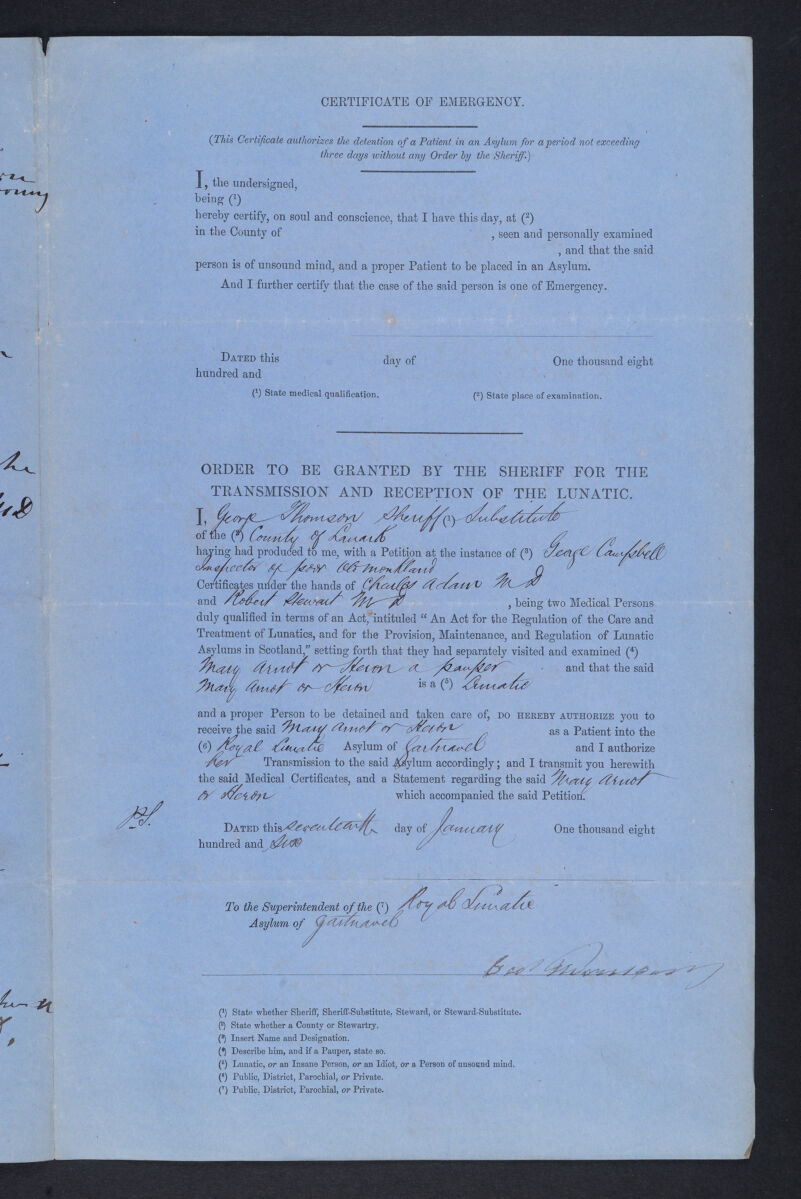 CERTIFICATE OF EMERGENCY.
(This Certificate authorizes the detention of a Patient in an Asylum for a period not exceeding
three days without any Order by the Sheriff.)
I, the undersigned,
being (¹)
hereby certify, on soul and conscience, that I have this day, at (²)
in the County of , seen and personally examined
, and that the said
person is of unsound mind, and a proper Patient to be placed in an Asylum.
And I further certify that the case of the said person is one of Emergency.
DATED this day of One thousand eight
hundred and
(¹) State medical qualification. (²) State place of examination.
ORDER TO BE GRANTED BY THE SHERIFF FOR THE
TRANSMISSION AND RECEPTION OF THE LUNATIC.
I, George Thomson Sheriff (¹) Substitute
of the (²) County of Lanark
having had produced to me, with a Petition at the instance of (³) George Campbell
Inspector of poor Old monkland
Certificates under the hands of Charles Adam M D
and Robert Stewart M D , being two Medical Persons
duly qualified in terms of an Act, intituled “ An Act for the Regulation of the Care and
Treatment of Lunatics, and for the Provision, Maintenance, and Regulation of Lunatic
Asylums in Scotland,” setting forth that they had separately visited and examined (⁴)
Mary Arnot or Heron a pauper and that the said
Mary Arnot or Heron is a (⁵) Lunatic
and a proper Person to be detained and taken care of, DO HEREBY AUTHORIZE you to
receive the said Mary Arnot or Heron as a Patient into the
(⁶) Royal Lunatic Asylum of Gartnavel and I authorize
her Transmission to the said Asylum accordingly; and I transmit you herewith
the said Medical Certificates, and a Statement regarding the said Mary Arnot
or Heron which accompanied the said Petition.
DATED this seventeenth day of January One thousand eight
hundred and
To the Superintendent of the (⁷) Royal Lunatic
Asylum of Gartnavel
Geo Thomson
(¹) State whether Sheriff, Sheriff-Substitute, Steward, or Steward-Substitute.
(²) State whether a County or Stewartry.
(³) Insert Name and Designation.
(⁴) Describe him, and if a Pauper, state so.
(⁵) Lunatic, or an Insane Person, or an Idiot, or a Person of unsound mind.
(⁶) Public, District, Parochial, or Private.
(⁷) Public, District, Parochial, or Private.